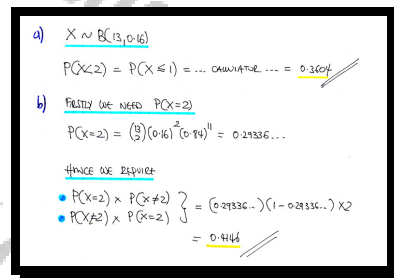 a) X ~ B(13, 0.16)
P(X<2) = P(X≤1) = ... CALCULATOR ... = 0.3604
b) FIRSTLY WE NEED P(X=2)
P(X=2) = (13 2)(0.16)²(0.84)¹¹ = 0.29336...
HENCE WE REQUIRE
• P(X=2) × P(X≠2)
• P(X≠2) × P(X=2) } = (0.29336...)(1-0.29336...) ×2
= 0.4146